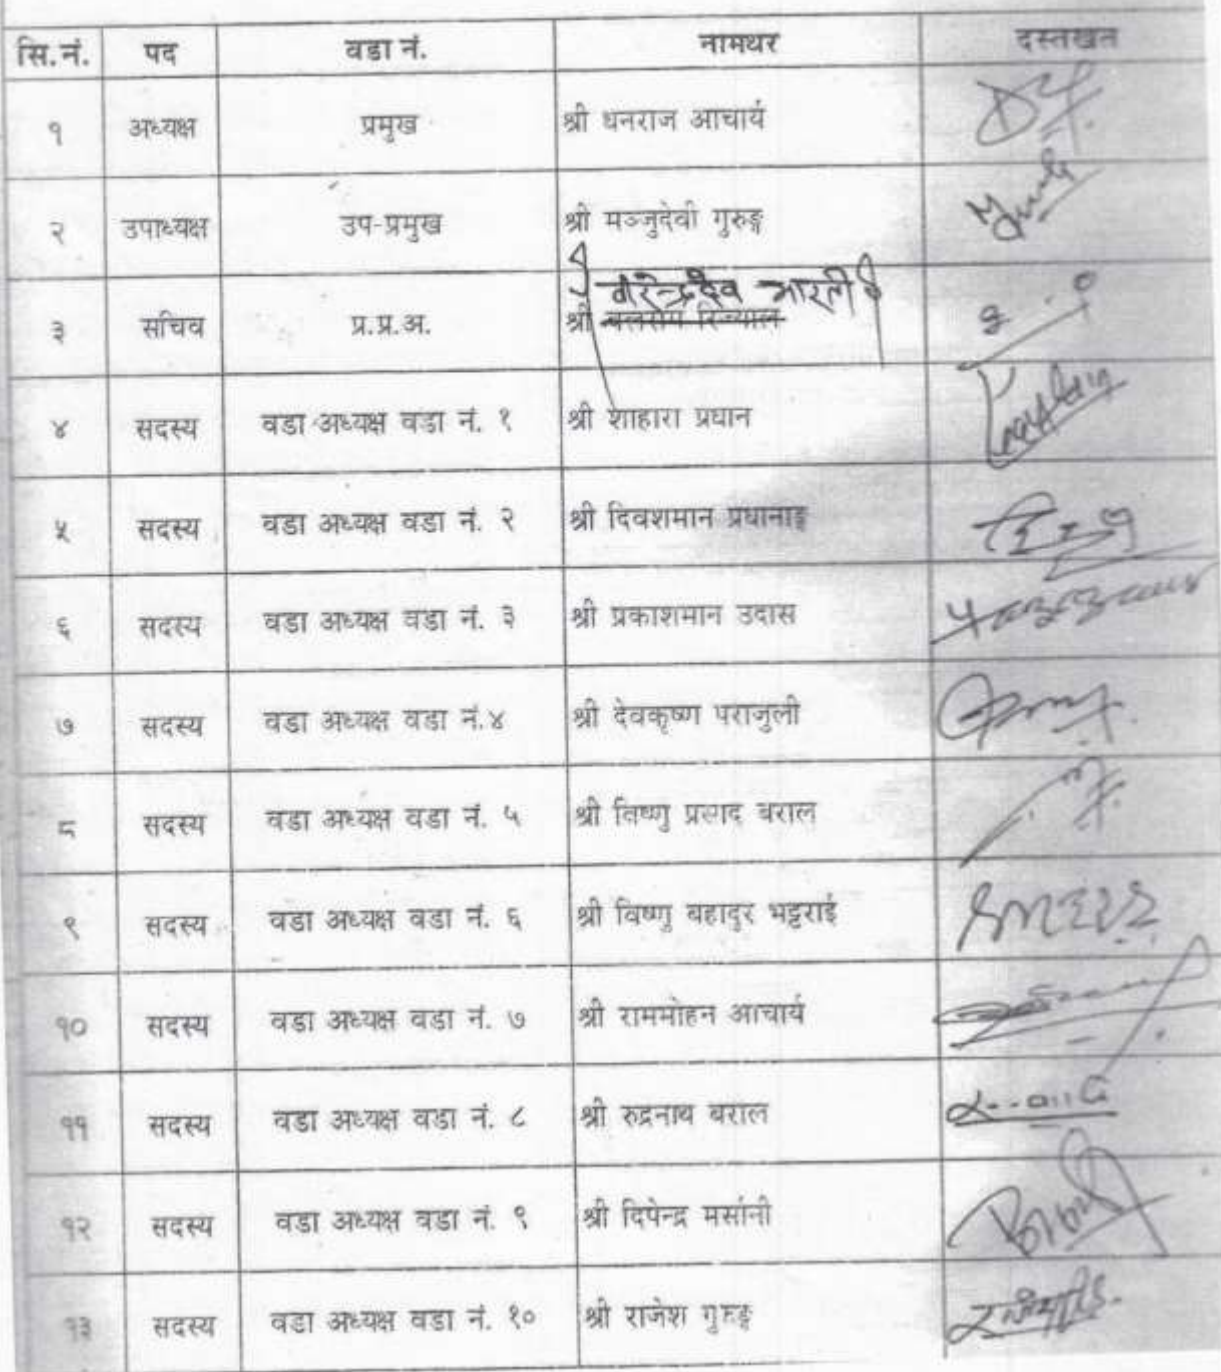 सि.नं. पद वडा नं. नामथर दस्तखत
१ अध्यक्ष प्रमुख श्री धनराज आचार्य
२ उपाध्यक्ष उप-प्रमुख श्री मञ्जुदेवी गुरुङ्ग
वीरेन्द्रदेव भारती
३ सचिव प्र.प्र.अ. श्री
४ सदस्य वडा अध्यक्ष वडा नं. १ श्री शाहारा प्रधान
५ सदस्य वडा अध्यक्ष वडा नं. २ श्री दिवशमान प्रधानाङ्ग
६ सदस्य वडा अध्यक्ष वडा नं. ३ श्री प्रकाशमान उदास
७ सदस्य वडा अध्यक्ष वडा नं.४ श्री देवकृष्ण पराजुली
८ सदस्य वडा अध्यक्ष वडा नं. ५ श्री विष्णु प्रसाद बराल
९ सदस्य वडा अध्यक्ष वडा नं. ६ श्री विष्णु बहादुर भट्टराई
१० सदस्य वडा अध्यक्ष वडा नं. ७ श्री राममोहन आचार्य
११ सदस्य वडा अध्यक्ष वडा नं. ८ श्री रुद्रनाथ बराल
१२ सदस्य वडा अध्यक्ष वडा नं. ९ श्री दिपेन्द्र मर्सानी
१३ सदस्य वडा अध्यक्ष वडा नं. १० श्री राजेश गुरुङ्ग